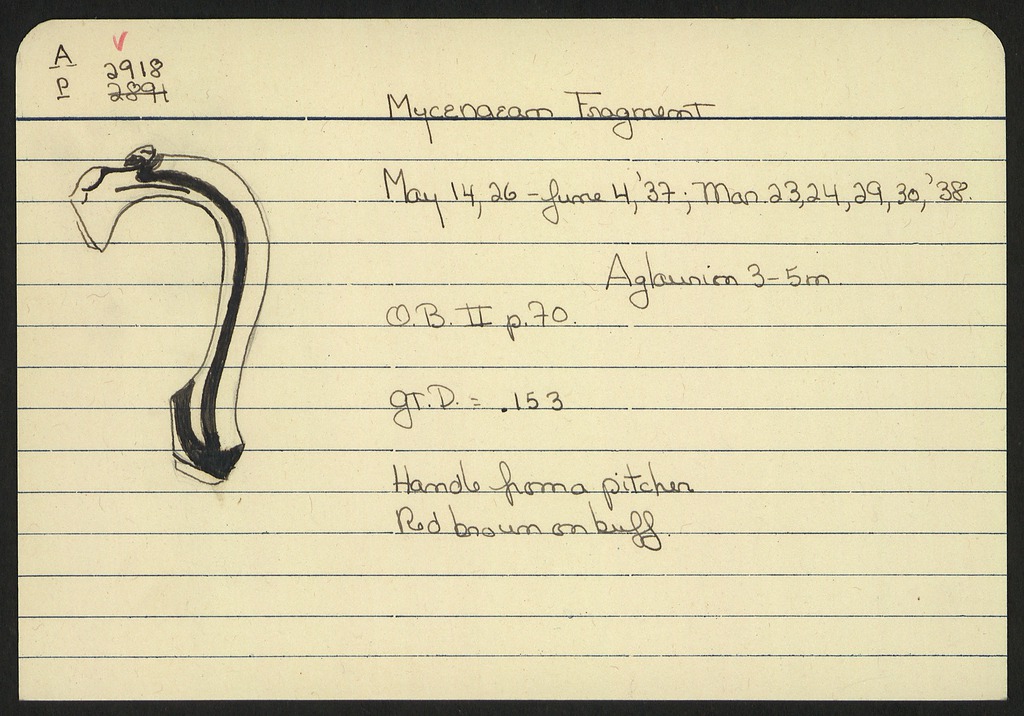 A
P
2918
2891
Mycenaean Fragment
May 14, 26 - June 4, '37; Mar. 23, 24, 29, 30, '38.
Aglaurion 3-5m.
O.B. II p. 70.
gr. D. = .153
Handle from a pitcher
Red brown on buff.